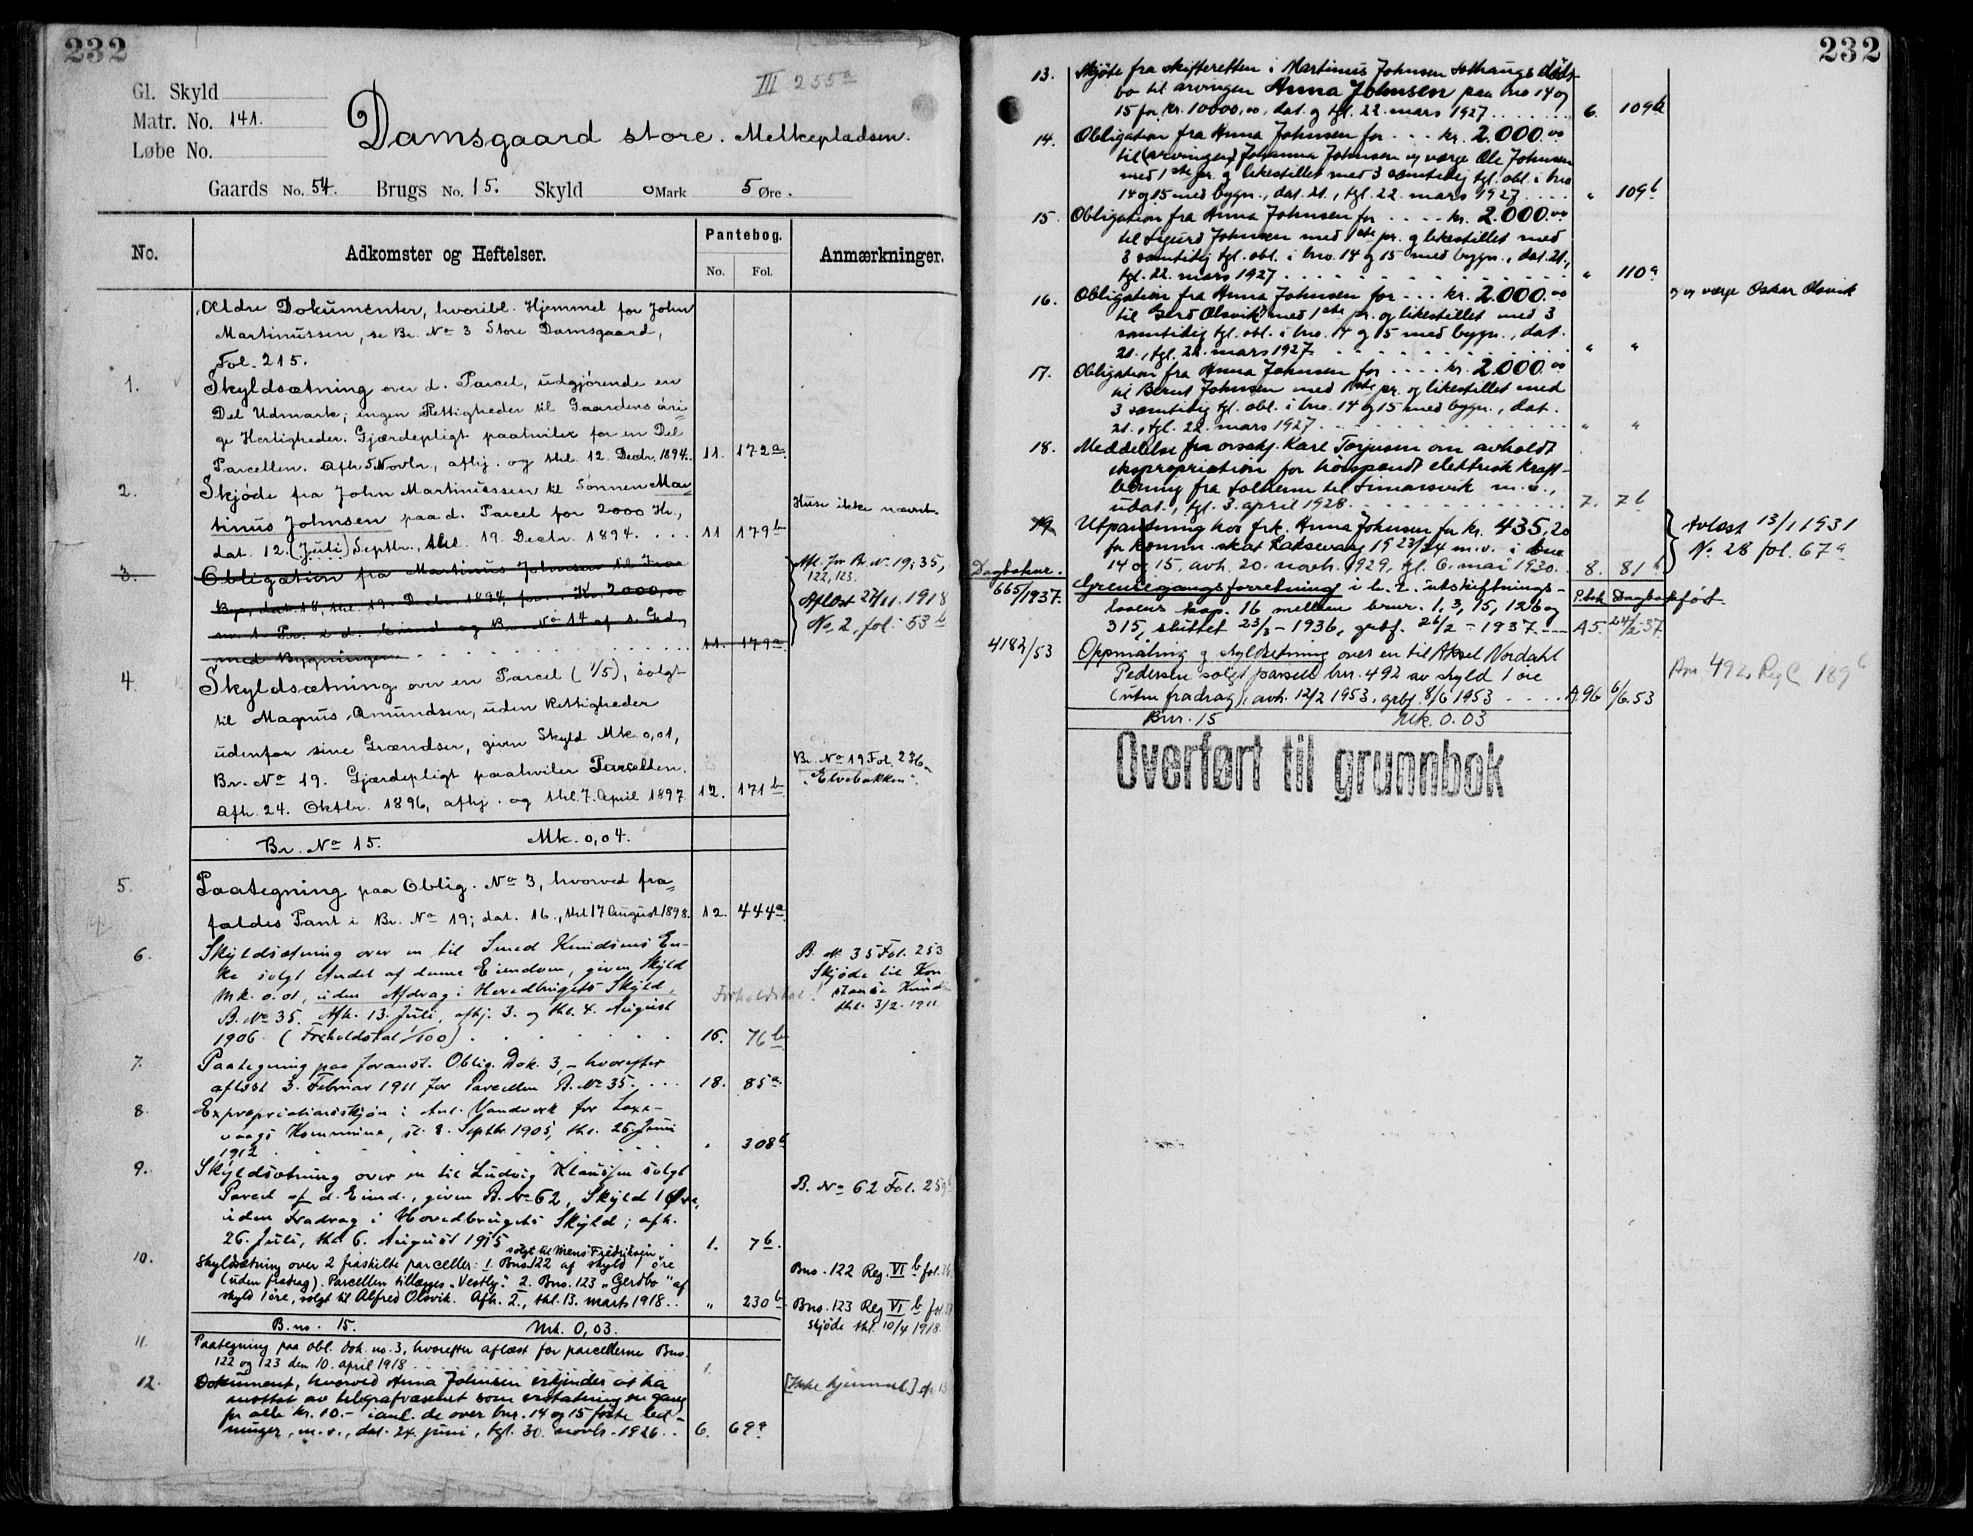 232
III 255a
Gl. Skyld
Matr. No. 141.
Løbe No.
Damsgaard store. Melkepladsen.
Gaards No. 54. Brugs No. 15. Skyld 0 Mark 5 Øre.
No. Adkomster og Heftelser. Pantebog. No. Fol. Anmærkninger.
Ældre Dokumenter, hvoribl. Hjemmel for John
Martinussen, se Br. No 3 Store Damsgaard,
Fol. 215.
1. Skyldsætning over d. Parcel, udgjørende en
Del Udmark; ingen Rettigheder til Gaardens øvri-
ge Herligheder. Gjærdepligt paahviler for en Del
Parcellen. Afh. 5 Novbr., afhj. og thl. 12. Decbr. 1894. 11. 172a
2. Skjøde fra John Martinussen til Sønnen Mar-
tinus Johnsen paa d. Parcel for 2000 Kr.,
dat. 12. (Juli) Septbr., thl. 19. Decbr. 1894. . . . 11 179b
Huse ikke nævnt.
3. Obligation fra Martinus Johnsen til
dat. 18, thl. 19. Decbr. 1894, for Kr. 2000,00
m. 1. Pr. i d. Eiend og Br. No 14 af s. Grd.
med Bygninger 11. 179a
Afl. for Br. No. 19, 35,
122, 123.
Aflæst 27/11. 1918
No. 2, fol. 53b
4. Skyldsætning over en Parcel (1/5), solgt
til Magnus Amundsen, uden Rettigheder
udenfor sine Grændser, given Skyld Mk. 0,01,
Br. No 19. Gjærdepligt paahviler Parcellen.
Afh. 24. Oktbr. 1896, afhj. og thl. 7. April 1897 12. 171b
Br. No 19 Fol. 236
"Elvebakken".
Br. No 15. Mk. 0,04.
5. Paategning paa Oblig. No 3, hvorved fra-
faldes Pant i Br. No 19; dat. 16., thl 17 August 1898. 12. 444a
6. Skyldsætning over en til Smed Knudsens En-
ke solgt Andel af denne Eiendom, given Skyld
Mk. 0.01, uden Afdrag i Hovedbrugets Skyld,
B. No 35. Afh. 13. Juli, afhj. 3. og thl. 4. August
1906. (Forholdstal 1/100) 16. 76b
Forholdstal!
B. No 35 Fol. 253
Skjøde til Kon
stanse Knud
thl. 3/2. 1911
7. Paategning paa foranst. Oblig. Dok. 3, - hvorefter
aflöst 3. Februar 1911 for Parcellen B. No 35. . . . 18. 85a
8. Expropriationsskjøn i Anl. Vandverk for Laxe-
vaags Kommune, sl. 8. Septbr. 1905, thl. 25. Juni
1912 " 308
9. Skyldsætning over en til Ludvig Klaussen solgt
Parcel af d. Eiend., given B. No 62, Skyld 1 Øre,
uden Fradrag i Hovedbrugets Skyld; afh.
26. Juli, thl. 6. August 1915 1. 7b.
B. No 62 Fol. 259
solgt til Mens Fredriksen
10. Skyldsætning over 2 fraskilte parceller: 1. Bno. 122 af skyld 1 øre
(uden fradrag). Parcellen tillægges "Vestly." 2. Bno. 123 "Gerdbo" af
skyld 1 øre, solgt til Alfred Olsvik. Afh. 2., thl. 13. marts 1918.. " 230b
Bno. 122 Reg. VI b fol.
Bno. 123 Reg VI b fol
skjøde thl. 10/4 1918.
B. no. 15. Mk. 0,03.
11. Paategning paa obl. dok. no. 3, hvorefter aflæst for parcellerne Bno.
122 og 123 den 10. april 1918 1.
12. Dokument, hvorved Anna Johnsen erkjender at ha
mottat av telegrafvæsenet som erstatning en gang
for alle kr. 10.- i anl. de over bnr. 14 og 15 førte led-
ninger, m.v., dat. 24. juni, tgl. 30. novbr. 1926.. 6. 69a
[Ikke hjemmel]
232
13. Skjøte fra skifteretten i Martinus Johnsen Solhaugs døds-
bo til arvingen Anna Johnsen paa bno 14 og
15 for kr. 10000,00, dat. og tgl. 22. mars 1927 . . . . 6. 109a
14. Obligation fra Anna Johnsen for - - - kr. 2.000.00
til (arvingen) Johanna Johnsen og værge Ole Johnsen
med 1ste pr. og likestillet med 3 samtidig tgl. obl. i bno
14 og 15 med bygn., dat. 21., tgl. 22. mars 1927 . . . . " 109b
15. Obligation fra Anna Johnsen for - - - - kr. 2.000.00
til Sigurd Johnsen med 1ste pr. og likestillet med
3 samtidig tgl. obl. i bno. 14 og 15 med bygn., dat. 21.,
tgl. 22. mars 1927 " 110a
16. Obligation fra Anna Johnsen for - - - kr. 2.000.00
til Gerd Olsvik med 1ste pr. og likestillet med 3
samtidig tgl. obl. i bno. 14 og 15 med bygn., dat.
21., tgl. 22. mars 1927 " "
og værge Oskar Olsvik
17. Obligation fra Anna Johnsen for - - - - kr. 2.000.00
til Bernt Johnsen med 1ste pr. og likestillet med
3 samtidig tgl. obl. i bno. 14 og 15 med bygn., dat.
21., tgl. 22. mars 1927 " "
18. Meddelelse fra orsakf. Karl Torjusen om avholdt
ekspropriation for höispændt elektrisk kraft-
ledning fra Solheim til Simarsvik m.v.,
udat., tgl. 3. april 1928. 7. 7b
19. Utpantning hos frk. Anna Johnsen for kr. 435,20
for komm. skat Laksevaag 1923/24 m.v. i bno
14 og 15, avh. 20. novbr. 1929, tgl. 6. mai 1930. 8. 81
Avlæst 13/1 1931
No. 28 fol. 67a
Dagboknr.
665/1937. Grensegangsforretning i h. t. utskiftnings-
lovens kap. 16 mellem bnr. 1, 3, 15, 126 og
315, sluttet 23/3 - 1936, grbf. 26/2 - 1937 - - A5. 24/2 37
P.bok Dagbokført
4182/53 Oppmåling og skyldsetning over en til Aksel Nordahl
Pedersen solgt parsell bnr. 492 av skyld 1 øre
(uten fradrag), avh. 12/2 1953, grbf. 8/6 1953 - - - A.96 6/6.53
Bnr. 492, Reg C 189b
Bnr. 15 Mk. 0.03
Overført til grunnbok